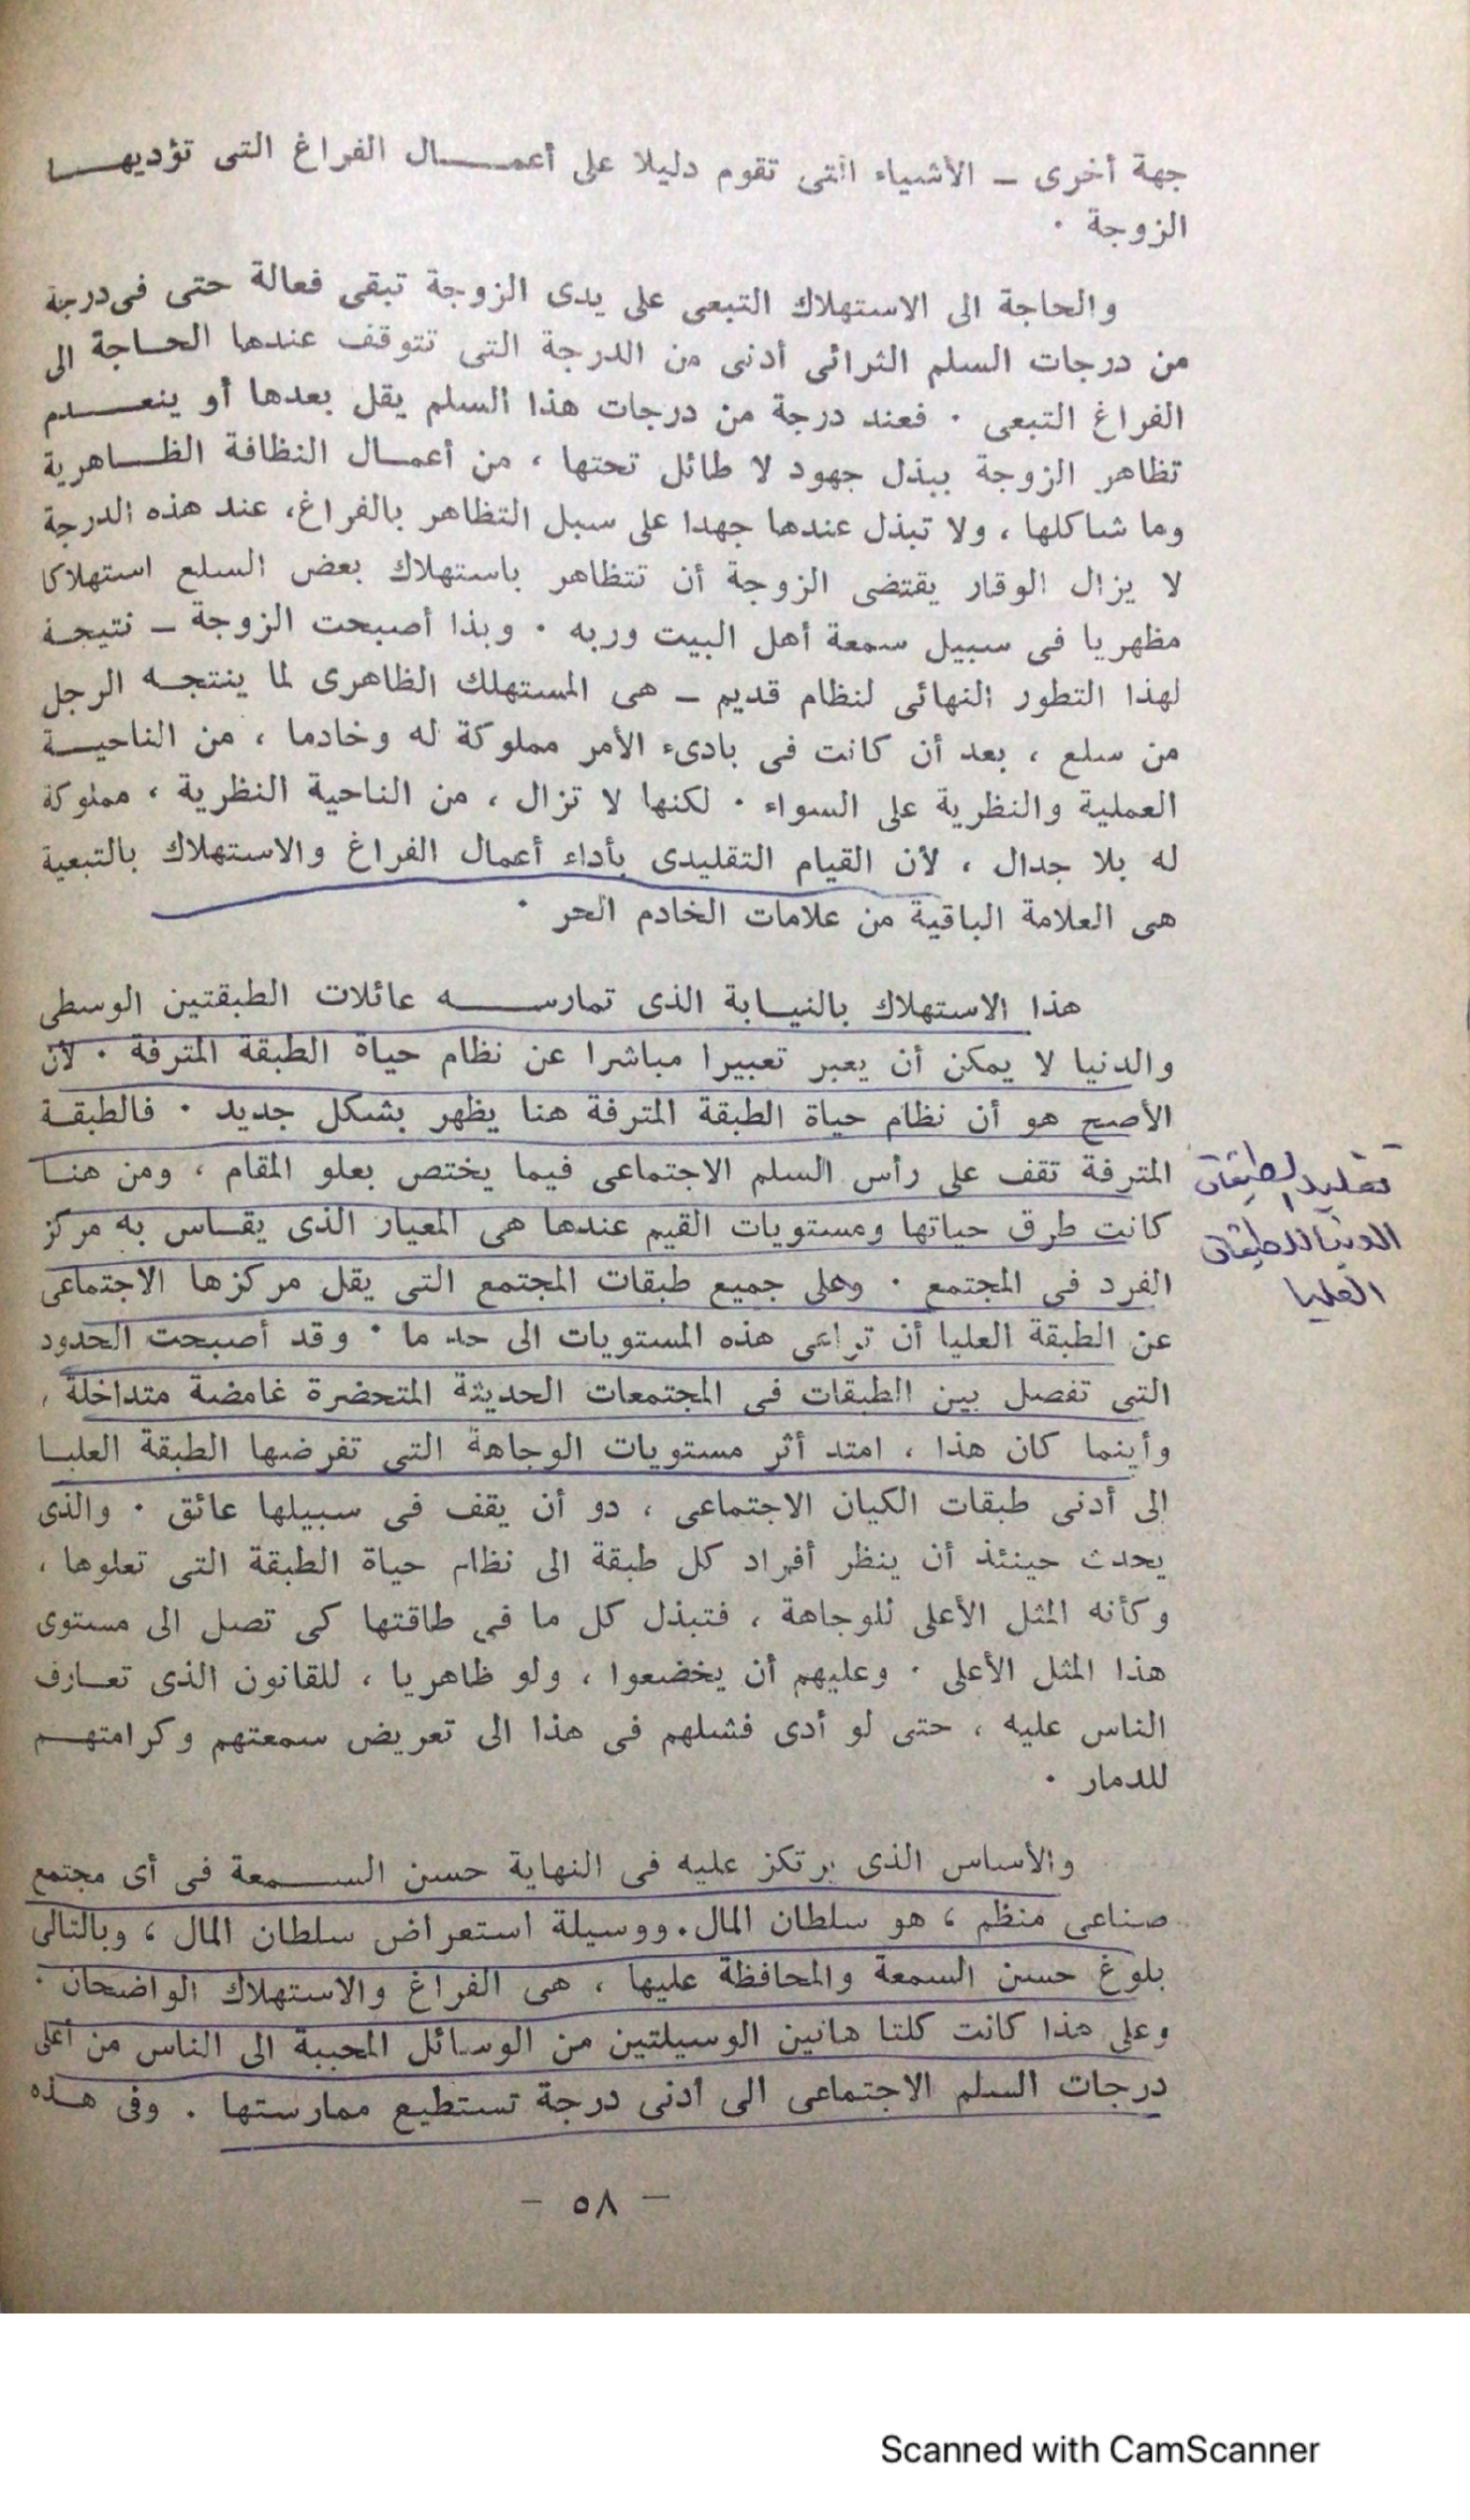 جهة أخرى ــ الأشياء التى تقوم دليلا على أعمـــال الفراغ التى تؤديهــا
الزوجة ٠
والحاجة الى الاستهلاك التبعى على يدى الزوجة تبقى فعالة حتى فى درجة
من درجات السلم الثرائى أدنى من الدرجة التى تتوقف عندها الحاجة الى
الفراغ التبعى ٠ فعند درجة من درجات هذا السلم يقل بعدها أو ينعــدم
تظاهر الزوجة ببذل جهود لا طائل تحتها ، من أعمال النظافة الظاهرية
وما شاكلها ، ولا تبذل عندها جهدا على سبيل التظاهر بالفراغ، عند هذه الدرجة
لا يزال الوقار يقتضى الزوجة أن تتظاهر باستهلاك بعض السلع استهلاكا
مظهريا فى سبيل سمعة أهل البيت وربه ٠ وبذا أصبحت الزوجة ــ نتيجة
لهذا التطور النهائى لنظام قديم ــ هى المستهلك الظاهرى لما ينتجه الرجل
من سلع ، بعد أن كانت فى بادىء الأمر مملوكة له وخادما ، من الناحيــة
العملية والنظرية على السواء ٠ لكنها لا تزال ، من الناحية النظرية ، مملوكة
له بلا جدال ، لأن القيام التقليدى بأداء أعمال الفراغ والاستهلاك بالتبعية
هى العلامة الباقية من علامات الخادم الحر ٠
هذا الاستهلاك بالنيابة الذى تمارســـه عائلات الطبقتين الوسطى
والدنيا لا يمكن أن يعبر تعبيرا مباشرا عن نظام حياة الطبقة المترفة ٠ لأن
الأصح هو أن نظام حياة الطبقة المترفة هنا يظهر بشكل جديد ٠ فالطبقــة
المترفة تقف على رأس السلم الاجتماعى فيما يختص بعلو المقام ، ومن هنــا
تقليد الطبقات
كانت طرق حياتها ومستويات القيم عندها هى المعيار الذى يقاس به مركز
الدنيا للطبقات
الفرد فى المجتمع ٠ وعلى جميع طبقات المجتمع التى يقل مركزها الاجتماعى
العليا
عن الطبقة العليا أن تراعى هذه المستويات الى حد ما ٠ وقد أصبحت الحدود
التى تفصل بين الطبقات فى المجتمعات الحديثة المتحضرة غامضة متداخلة ،
وأينما كان هذا ، امتد أثر مستويات الوجاهة التى تفرضها الطبقة العليــا
الى أدنى طبقات الكيان الاجتماعى ، دو أن يقف فى سبيلها عائق ٠ والذى
يحدث حينئذ أن ينظر أفراد كل طبقة الى نظام حياة الطبقة التى تعلوها ،
وكأنه المثل الأعلى للوجاهة ، فتبذل كل ما فى طاقتها كى تصل الى مستوى
هذا المثل الأعلى ٠ وعليهم أن يخضعوا ، ولو ظاهريا ، للقانون الذى تعــارف
الناس عليه ، حتى لو أدى فشلهم فى هذا الى تعريض سمعتهم وكرامتهــم
للدمار ٠
والأساس الذى يرتكز عليه فى النهاية حسن الســمعة فى أى مجتمع
صناعى منظم ، هو سلطان المال. ووسيلة استعراض سلطان المال ، وبالتالى
بلوغ حسن السمعة والمحافظة عليها ، هى الفراغ والاستهلاك الواضحان ٠
وعلى هذا كانت كلتا هاتين الوسيلتين من الوسائل المحببة الى الناس من أعلى
درجات السلم الاجتماعى الى أدنى درجة تستطيع ممارستها . وفى هــذه
— ٥٨ —
Scanned with CamScanner